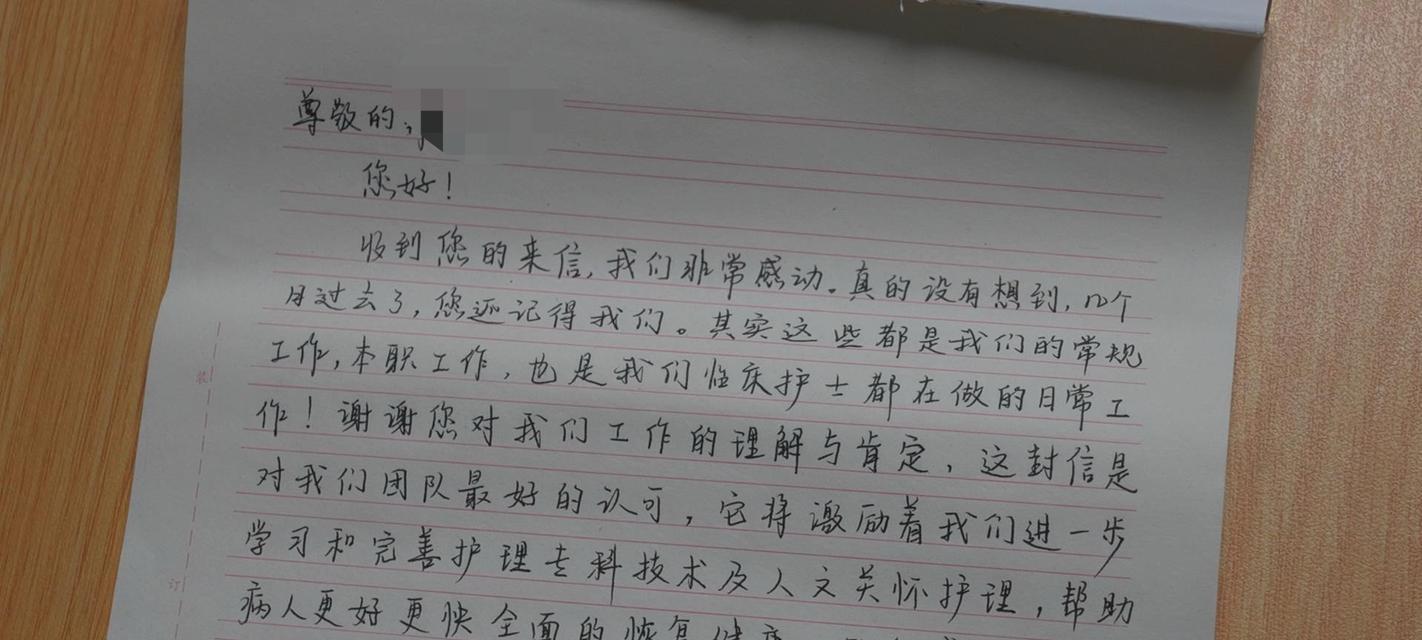 尊敬的
您好！
收到您的来信，我们非常感动。真的没有想到，几个
月过去了，您还记得我们。其实这些都是我们的常规
工作，本职工作，也是我们临床护士都在做的日常工
作！谢谢您对我们工作的理解与肯定，这封信是
对我们团队最好的认可，它将激励着我们进一步
学习和完善护理专科技术及人文关怀护理，帮助
病人更好更快全面的恢复健康
装
订